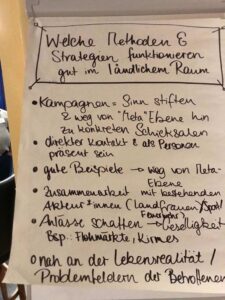 Welche Methoden &
Strategien funktionieren
gut im ländlichem Raum
• Kampagnen = Sinn stiften
& weg von "Meta" Ebene hin
zu konkreten Schicksalen
• direkter Kontakt & als Person
präsent sein
• gute Beispiele → weg von Meta-
Ebene
• Zusammenarbeit mit bestehenden
Akteur*innen (Landfrauen/Sport/
Feuerwehr)
• Anlässe schaffen → Geselligkeit
Bsp.: Flohmärkte, Kirmes
• nah an der Lebensrealität/
Problemfeldern der Betroffenen